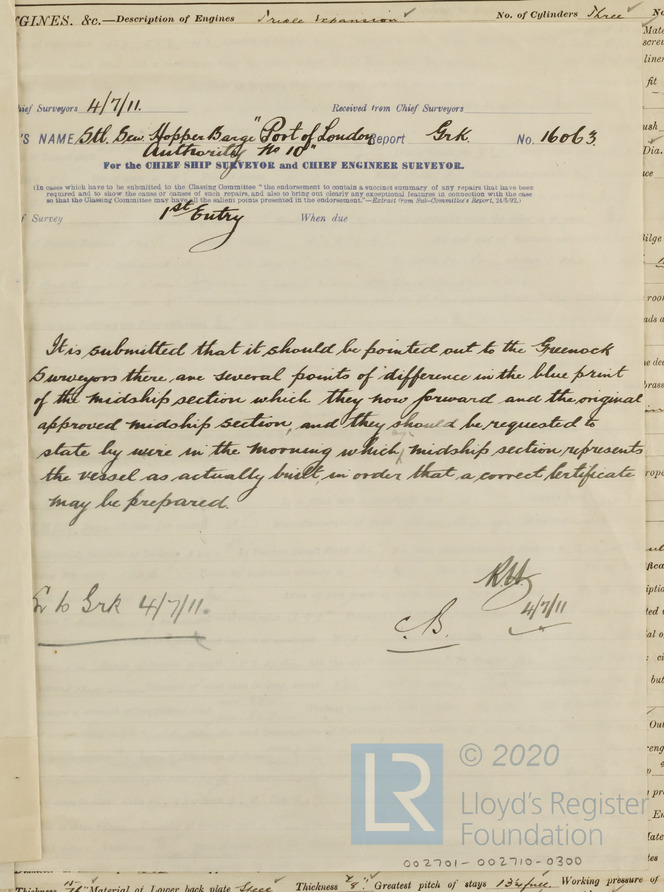 GINES, &c.—Description of Engines Triple Expansion No. of Cylinders Three No
hief Surveyors 4/7/11. Received from Chief Surveyors
'S NAME Stl. Scw Hopper Barge "Port of London Report Grk. No. 16063
Authority No 10"
For the CHIEF SHIP SURVEYOR and CHIEF ENGINEER SURVEYOR.
(In cases which have to be submitted to the Classing Committee "the endorsement to contain a succinct summary of any repairs that have been
required and to show the cause or causes of such repairs, and also to bring out clearly any exceptional features in connection with the case
so that the Classing Committee may have all the salient points presented in the endorsement."—Extract from Sub-Committee's Report, 24/5/92.)
f Survey 1st Entry When due
It is submitted that it should be pointed out to the Greenock
Surveyors there are several points of difference in the blue print
of the midship section which they now forward and the original
approved midship section, and they should be requested to
state by wire in the morning which midship section represents
the vessel as actually built, in order that a correct Certificate
may be prepared.
R.H.
4/7/11
to Grk 4/7/11.
C.B.
LR
© 2020
Lloyd's Register
Foundation
002701-002710-0300
Thickness Material of Lower back plate Steel Thickness Greatest pitch of stays Working pressure of